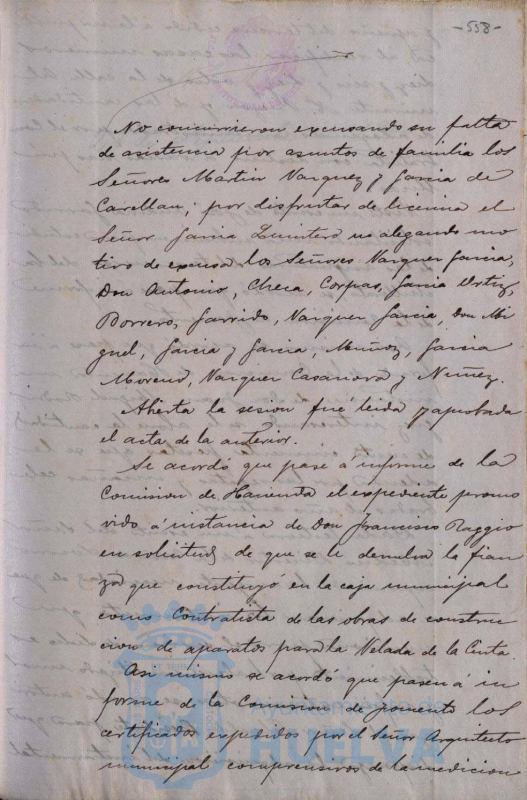 -558-
No concurrieron excusando su falta
de asistencia por asuntos de familia los
Señores Martin Vazquez y Garcia de
Carellan; por disfrutar de licencia el
Señor Garcia Quintero no alegando mo
tivo de excusa los Señores Vazquez Garcia,
Don Antonio, Checa, Corpas, Garcia Ortiz,
Borrero, Garrido, Vazquez Garcia, Don Mi
guel, Garcia y Garcia, Muñoz, Garcia
Moreno, Vazquez Casanova y Nuñez.
Abierta la sesion fué leida y aprobada
el acta de la anterior.
Se acordó que pase á informe de la
Comision de Hacienda el expediente promo
vido á instancia de Don Francisco Raggio
en solicitud de que se le devuelva la fian
za que constituyó en la caja municipal
como Contratista de las obras de construc
cion de aparatos para la Velada de la Cinta.
Asi mismo se acordó que pasen á in
forme de la Comision de fomento los
certificados expedidos por el Señor Arquitecto
municipal comprensivos de la medicion
HUELVA